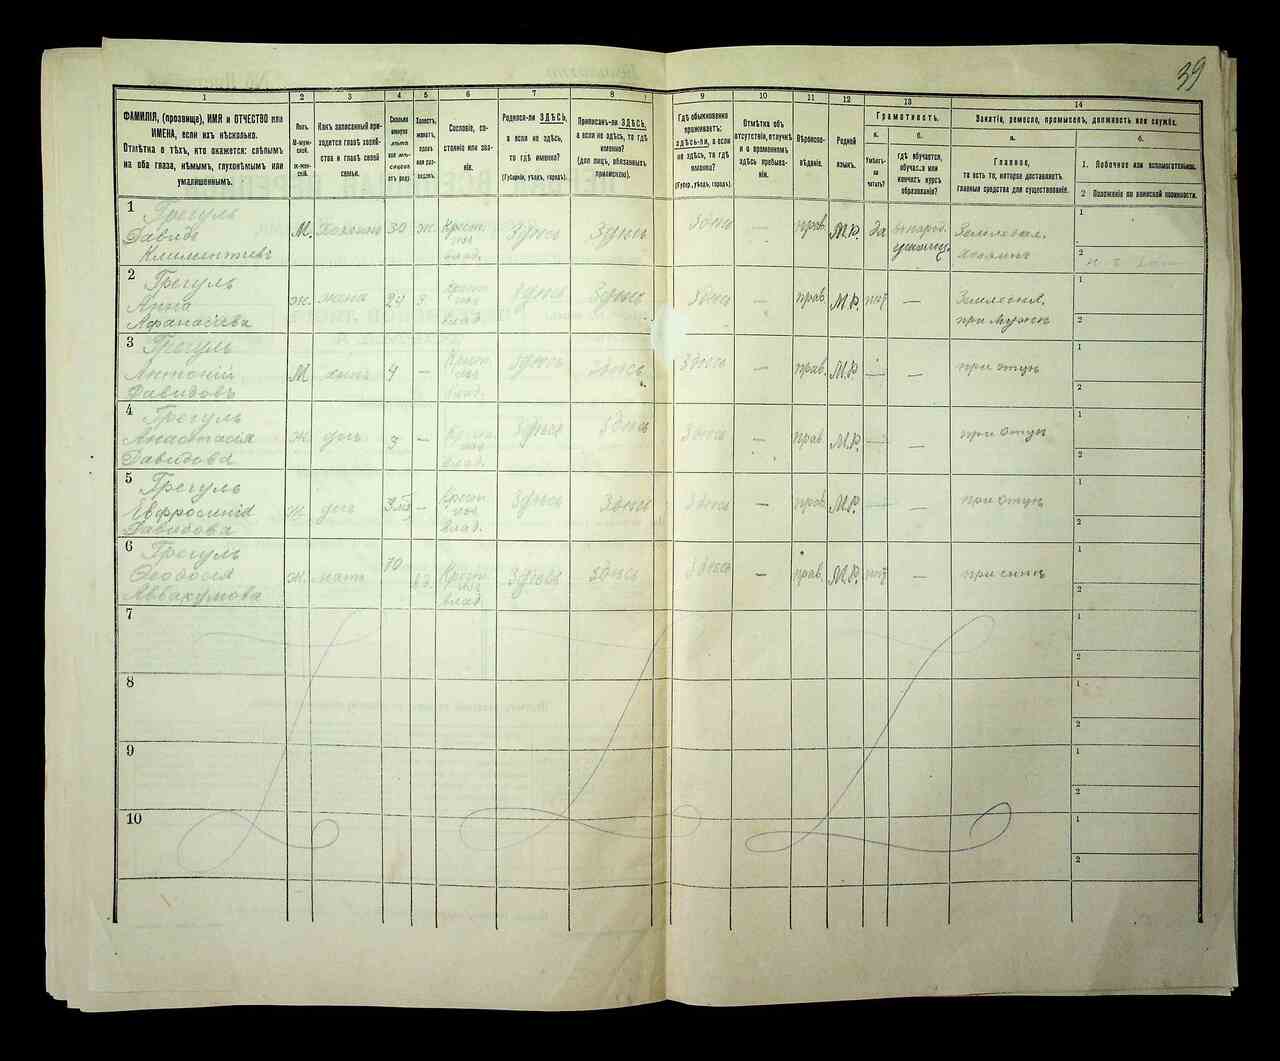 39
1 2 3 4 5 6 7 8 9 10 11 12 13 14
ФАМИЛІЯ, (прозвище), ИМЯ и ОТЧЕСТВО или
ИМЕНА, если ихъ нѣсколько.
Отмѣтка о тѣхъ, кто окажется: слѣпымъ
на оба глаза, нѣмымъ, глухонѣмымъ или
умалишеннымъ.
Полъ.
М-муж-
ской.
ж-жен-
скій.
Какъ записанный при-
ходится главѣ хозяй-
ства и главѣ своей
семьи.
Сколько
минуло
лѣтъ
или мѣ-
сяцевъ
отъ роду.
Холостъ,
женатъ,
вдовъ
или раз-
веденъ.
Сословіе, со-
стояніе или зва-
ніе.
Родился-ли ЗДѢСЬ,
а если не здѣсь,
то гдѣ именно?
(Губернія, уѣздъ, городъ).
Приписанъ-ли ЗДѢСЬ,
а если не здѣсь, то гдѣ
именно?
(Для лицъ, обязанныхъ
припискою).
Гдѣ обыкновенно
проживаетъ:
здѣсь-ли, а если
не здѣсь, то гдѣ
именно?
(Губер., уѣздъ, городъ).
Отмѣтка объ
отсутствіи, отлучкѣ
и о временномъ
здѣсь пребыва-
ніи.
Вѣроиспо-
вѣданіе.
Родной
языкъ.
Грамотность.
а.
Умѣетъ-
ли
читать?
б.
гдѣ обучается,
обучался или
кончилъ курсъ
образованія?
Занятіе, ремесло, промыселъ, должность или служба.
а.
Главное,
то есть то, которое доставляетъ
главныя средства для существованія.
б.
1. Побочное или вспомогательное.
2 Положеніе по воинской повинности.
1 Грегуль
Давидъ
Климентіевъ
М. Хозяинъ 30 ж. Крест.
влад. здѣсь здѣсь здѣсь — прав. М.Р. да въ народ.
училищ. Земледѣл.
хозяинъ 1
2
2 Грегуль
Анна
Афанасіева
ж. жена 24 з. здѣсь здѣсь здѣсь — прав. М.Р. нѣт — Земледѣл.
при мужѣ 1
2
3 Грегуль
Антоній
Давидовъ
М сынъ 4 — Крест.
влад. здѣсь здѣсь здѣсь — прав. М.Р — — при отцѣ 1
2
4 Грегуль
Анастасія
Давидова
ж. доч 3 — Крест.
влад. здѣсь здѣсь здѣсь — прав. М.Р. — — при отцѣ 1
2
5 Грегуль
Евфросинія
Давидова
ж. доч — Крест.
влад. здѣсь здѣсь здѣсь — прав. М.Р. — — при отцѣ 1
2
6 Грегуль
Ѳеодосія
Аввакумова
ж. мать 70 вд. Крест.
влад. здѣсь здѣсь здѣсь — прав. М.Р. нѣт — при сынѣ 1
2
7 1
2
8 1
2
9 1
2
10 1
2